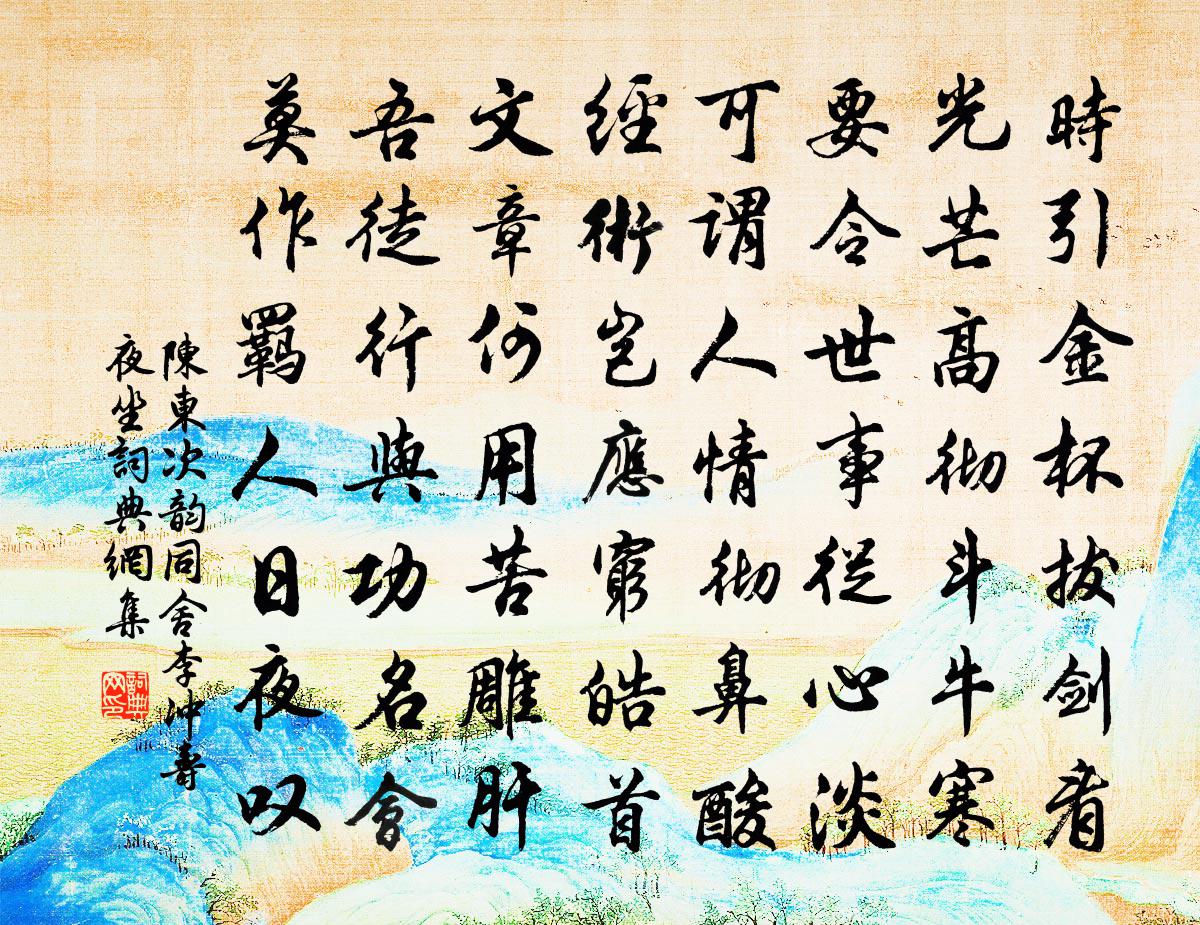 時引金杯拔剑看
光芒高彻斗牛寒
要令世事従心淡
可謂人情彻鼻酸
經術岂應窮皓首
文章何用苦雕肝
吾徒行與功名會
莫作羈人日夜叹
陳東次韵同舍李沖壽
夜坐詞典網集
詞典
网印